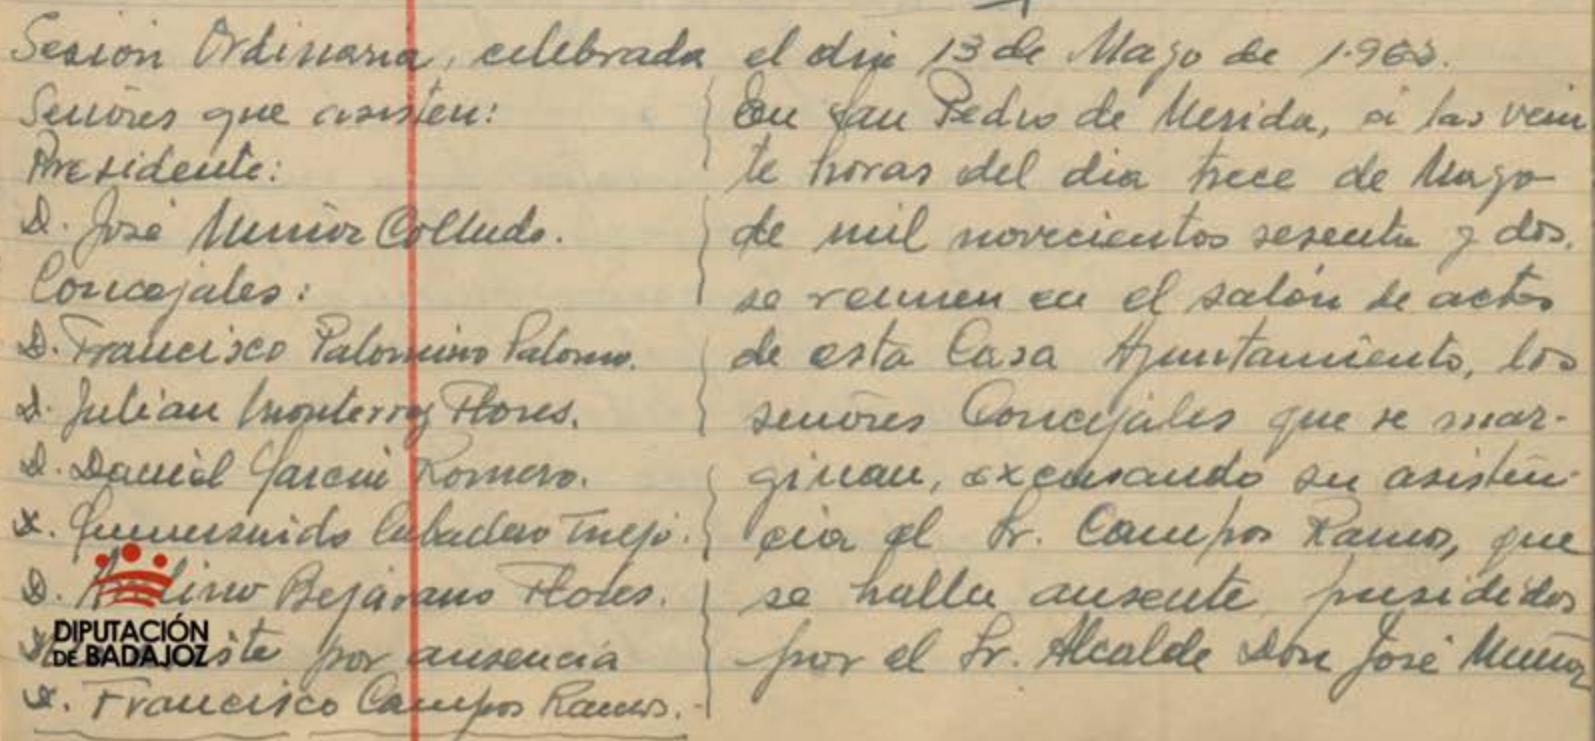 Sesión Ordinaria, celebrada el dia 13 de Mayo de 1.963.
Señores que asisten:
Presidente:
D. José Muñoz Collado.
Concejales:
D. Francisco Palomino Palomo.
D. Julian Monterrey Flores.
D. Daniel Garcia Romero.
D. Gumersindo Caballero Trejo.
D. Bejarano Flores.
por ausencia
D. Francisco Campos Ramos.
En San Pedro de Merida, a las vein
te horas del dia trece de Mayo
de mil novecientos sesenta y dos,
se reunen en el salón de actos
de esta Casa Ayuntamiento, los
señores Concejales que se mar-
ginan, excusando su asisten-
cia el Sr. Campos Ramos, que
se halla ausente, presididos
por el Sr. Alcalde Don José Muñoz
DIPUTACIÓN
DE BADAJOZ